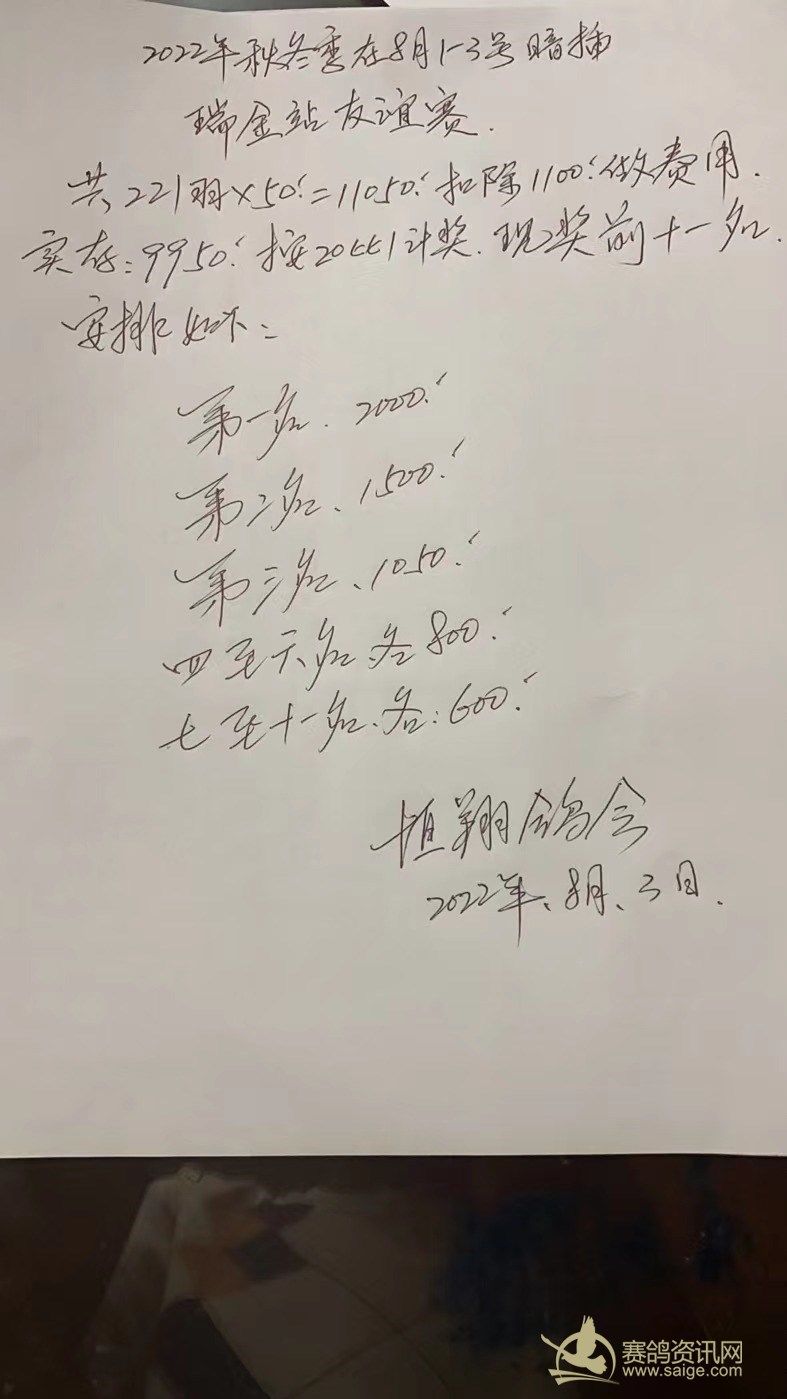 2022年秋冬季在8月1-3号暗插
瑞金站友谊赛.
共221羽×50.=11050.扣除1100.做费用.
实存:9950.按20比1计奖.现奖前十一名.
安排如下:
第一名.2000.
第二名、1500.
第三名、1050.
四至六名.各800.
七至十一名.各:600.
恒翔鸽会
2022年、8月、3日.
赛鸽资讯网
www.saige.com